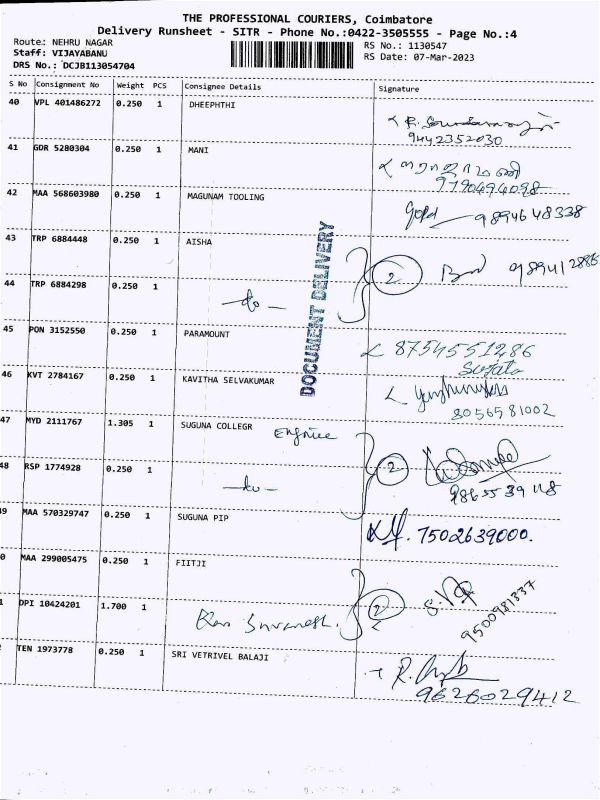 THE PROFESSIONAL COURIERS, Coimbatore
Delivery Runsheet - SITR - Phone No.:0422-3505555 - Page No.:4
Route: NEHRU NAGAR
Staff: VIJAYABANU
DRS No.: DCJB113054704
RS No.: 1130547
RS Date: 07-Mar-2023
S No Consignment No Weight PCS Consignee Details Signature
40 VPL 401486272 0.250 1 DHEEPHTHI
9442352030
41 GDR 5280304 0.250 1 MANI
9790494098
42 MAA 568603980 0.250 1 MAGUNAM TOOLING
Gold 9894648338
43 TRP 6884448 0.250 1 AISHA
2 989412886
44 TRP 6884298 0.250 1
-do-
DOCUMENT DELIVERY
45 PON 3152550 0.250 1 PARAMOUNT
8754551286
Sujata
46 KVT 2784167 0.250 1 KAVITHA SELVAKUMAR
8056581002
47 MYD 2111767 1.305 1 SUGUNA COLLEGR
2
48 RSP 1774928 0.250 1
-do-
49 MAA 570329747 0.250 1 SUGUNA PIP
7502639000.
0 MAA 299005475 0.250 1 FIITJI
2
9500981337
1 DPI 10424201 1.700 1
2 TEN 1973778 0.250 1 SRI VETRIVEL BALAJI
9626029412